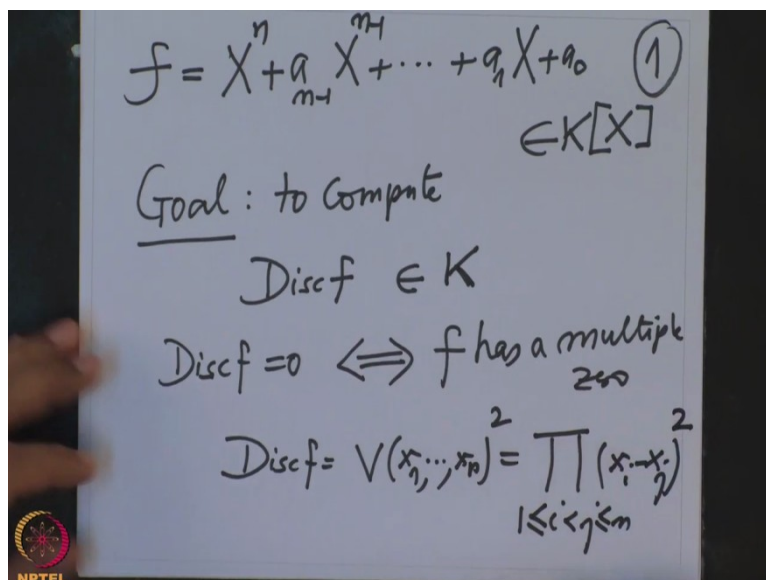 f = X^n + a_{n-1} X^{n-1} + ... + a_1 X + a_0 ①
∈ K[X]
Goal : to compute
Disc f ∈ K
Disc f = 0 ⟺ f has a multiple
zero
Disc f = V(x_1, ..., x_n)^2 = ∏ (x_i - x_j)^2
1 ≤ i < j ≤ n
NPTEL